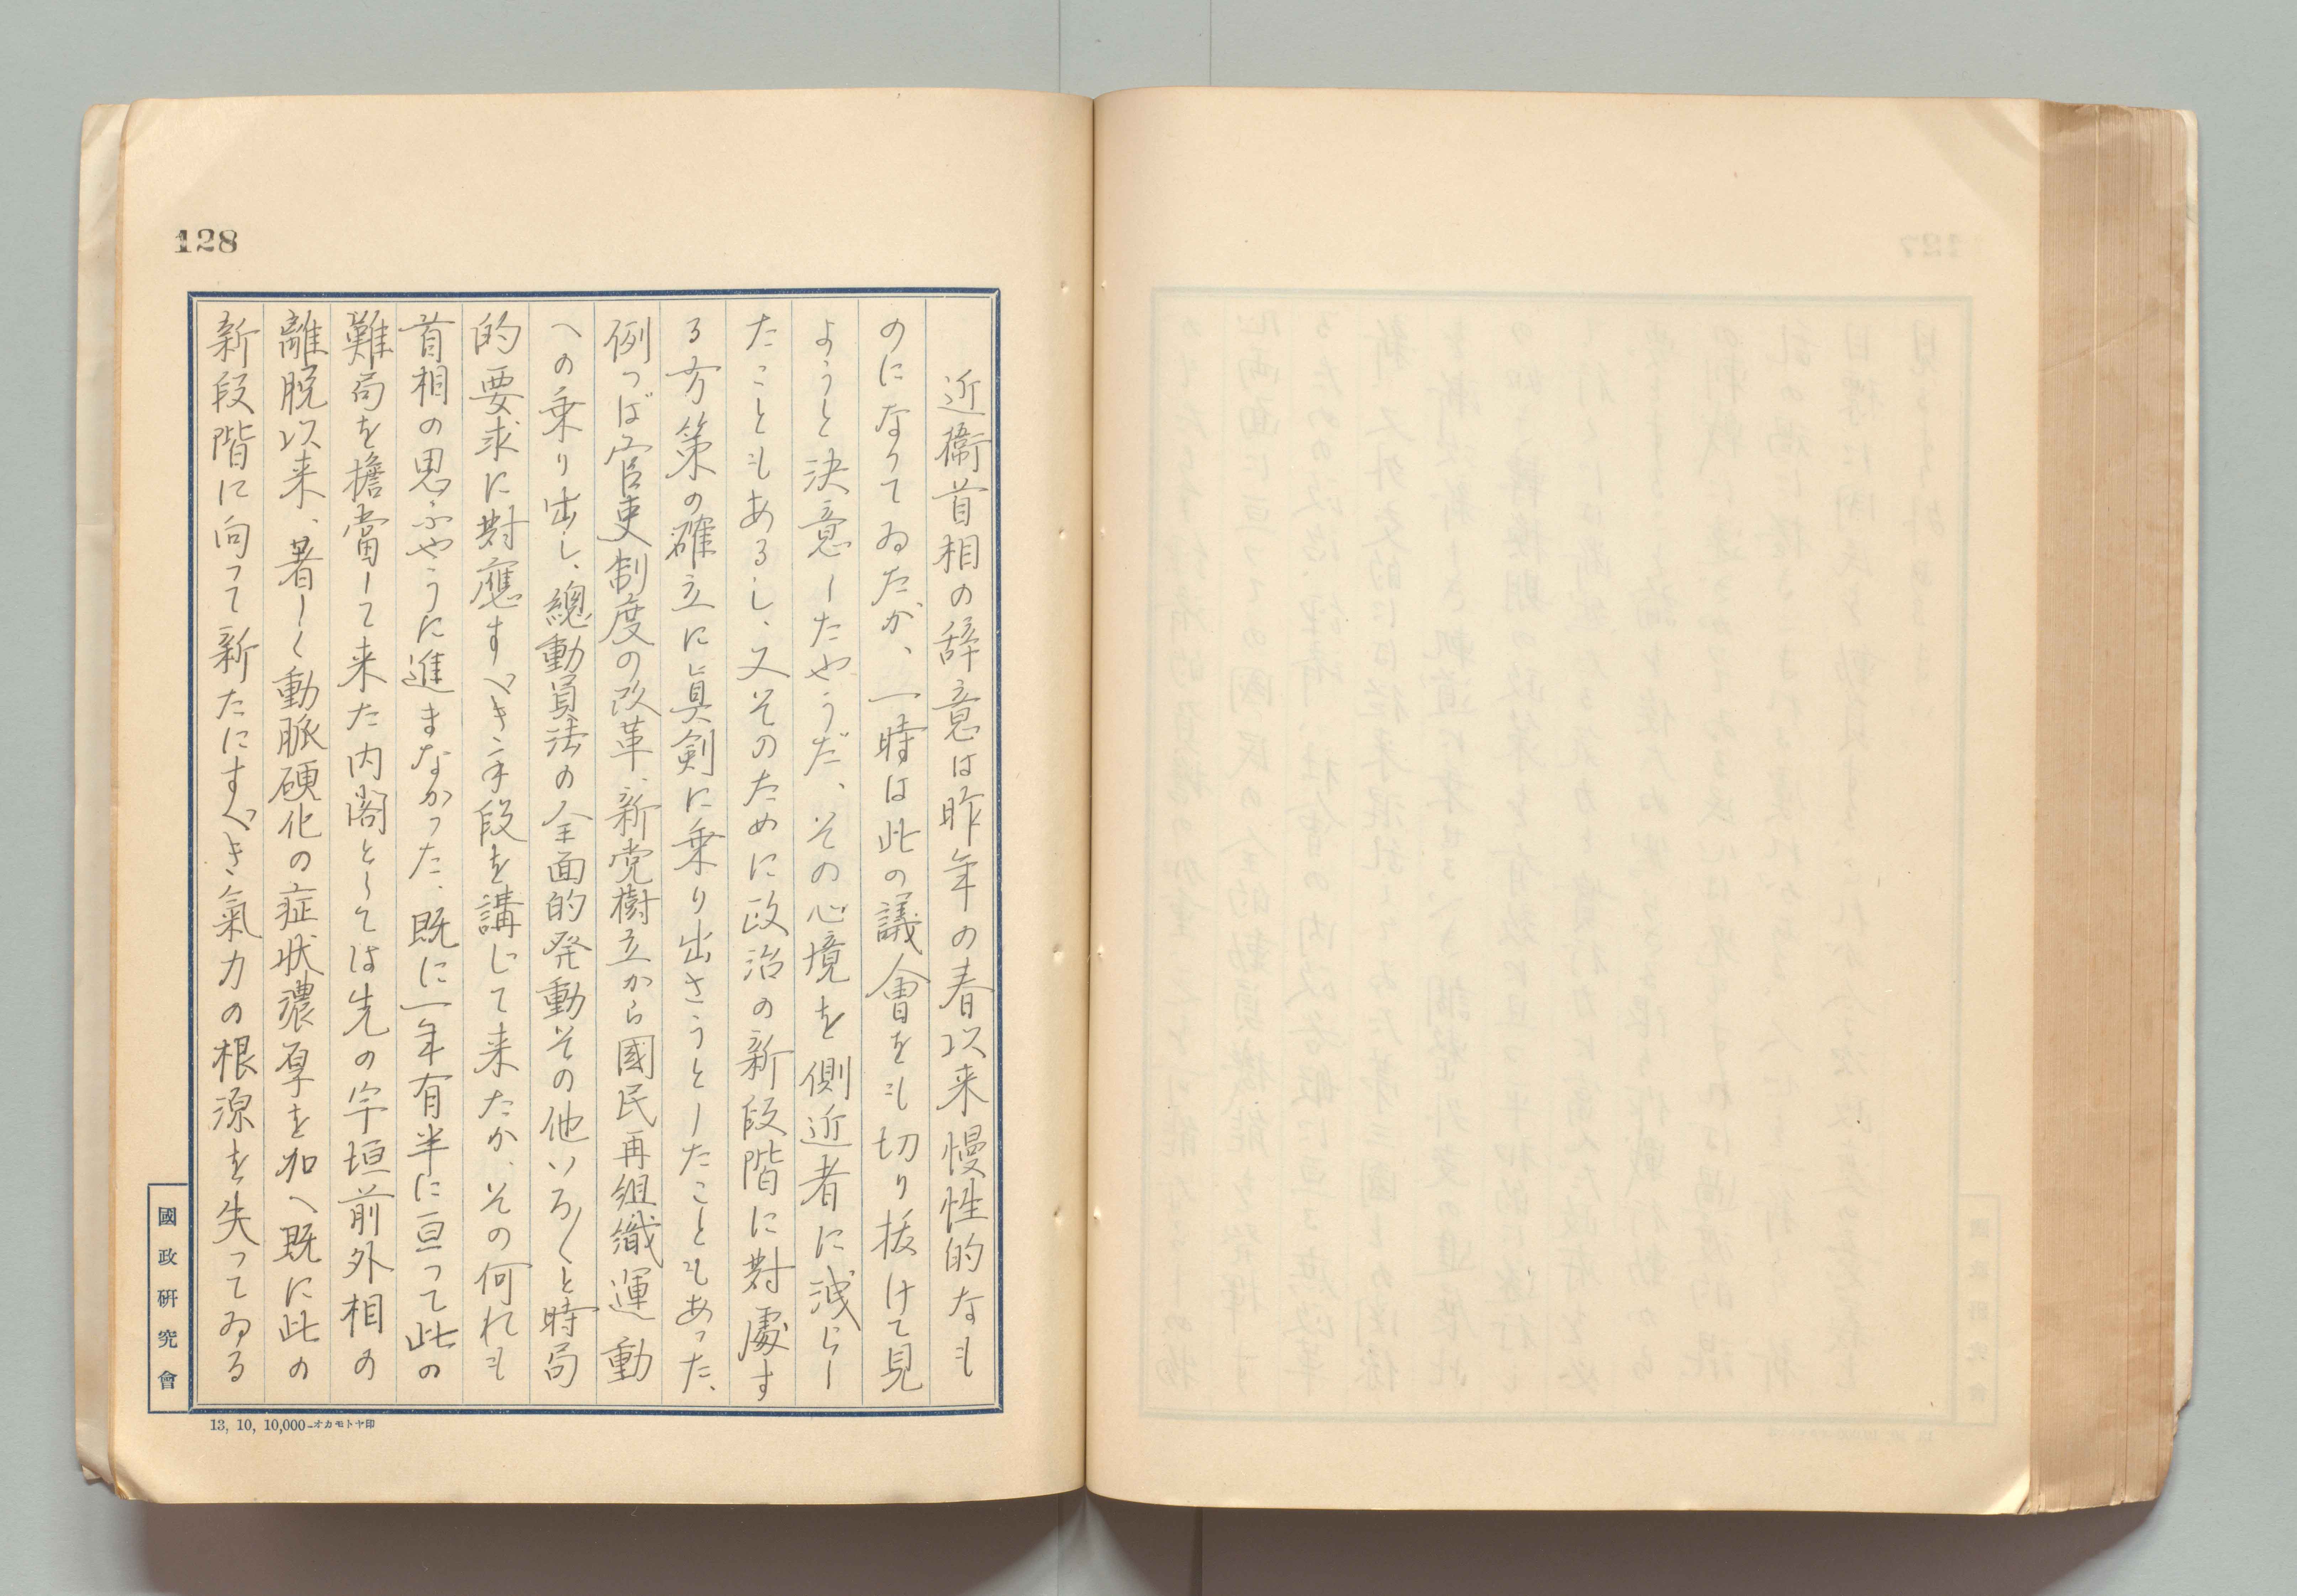 128
近衞首相の辞意は昨年の春以来慢性的なも
のになってゐたが、一時は此の議會をも切り拔けて見
ようと決意したやうだ、その心境を側近者に洩らし
たこともあるし、又そのために政治の新段階に對處す
る方策の確立に眞剣に乗り出さうとしたこともあった、
例へば官吏制度の改革、新党樹立から國民再組織運動
への乗り出し、總動員法の全面的発動その他いろ〳〵と時局
的要求に對應すべき手段を講じて来たが、その何れも
首相の思ふやうに進まなかった、既に一年有半に亘って此の
難局を擔當して来た内閣としては先の宇垣前外相の
離脱以来、著しく動脈硬化の症状濃厚を加へ既に此の
新段階に向って新たにすべき氣力の根源を失ってゐる
國政研究會
13, 10, 10,000-オカモトヤ印